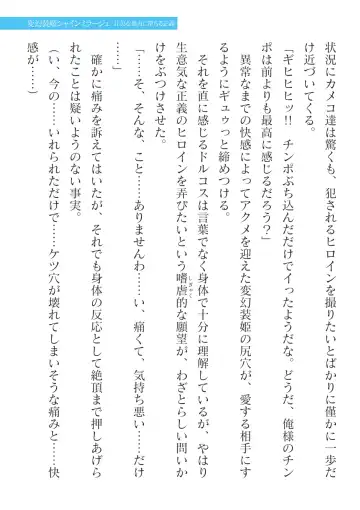 状況にカメコ達は驚くも、犯されるヒロインを撮りたいとばかりに僅かに一歩だ
け近づいてくる。
「ギヒヒヒッ!! チンポぶち込んだだけでイったようだな。どうだ、俺様のチン
ポは前よりも最高に感じるだろう?」
異常なまでの快感によってアクメを迎えた変幻装姫の尻穴が、愛する相手にす
るようにギュゥっと締めつける。
それを直に感じるドルコスは言葉でなく身体で十分に理解しているが、やはり
生意気な正義のヒロインを弄びたいという嗜虐的な願望が、わざとらしい問いか
けをぶつけさせた。
「……そ、そんな、こと……ありませんわ……い、痛くて、気持ち悪い……だけ
で……」
確かに痛みを訴えてはいたが、それでも身体の反応として絶頂まで押しあげら
れたことは疑いようのない事実。
(い、今の……いれられただけで……ケツ穴が壊れてしまいそうな痛みと……快
感が……)